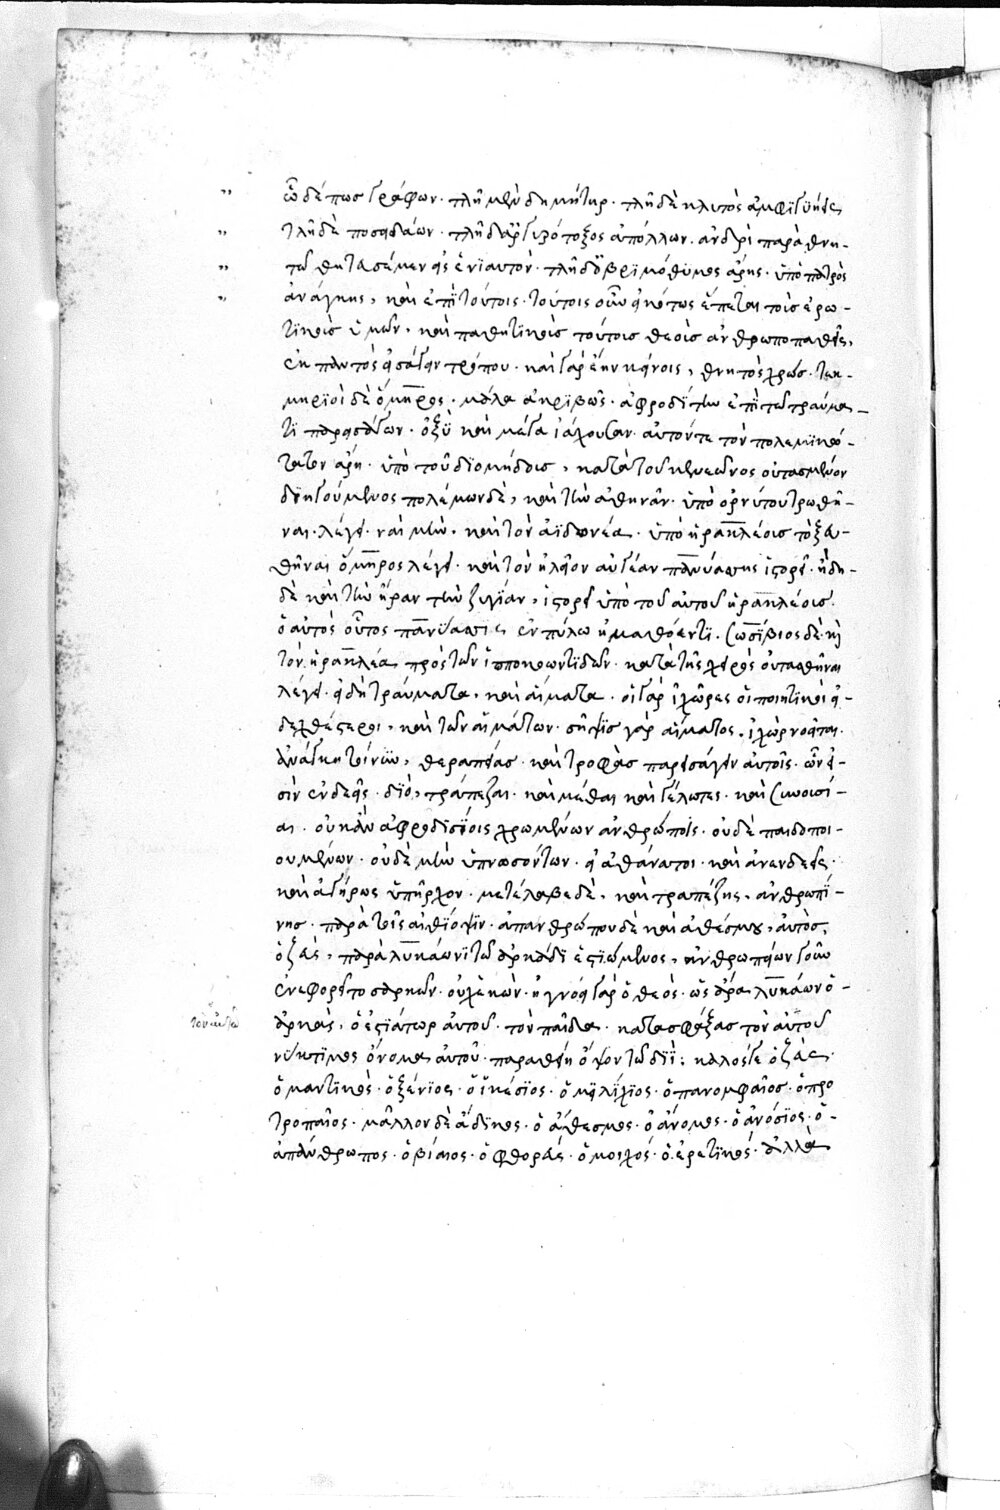 " ὧδέ πως γράφων· τλῆ μὲν δημήτηρ· τλῆ δὲ κλυτὸς ἀμφιγυήεις
" τλῆ δὲ ποσειδάων· τλῆ δ' ἀργυρότοξος ἀπόλλων· ἀνδρὶ παρὰ θνη-
" τῶ θητευσέμεν εἰς ἐνιαυτόν· τλῆ δ' ὀβριμόθυμος ἄρης· ὑπὸ πατρὸς
" ἀνάγκης, καὶ ἐπὶ τούτοις· τούτοις οὖν εἰκότως ἕπεται τοὺς ἐρω-
τικοὺς ὑμῶν, καὶ παθητικοὺς τούτους θεοὺς ἀνθρωποπαθεῖς,
ἐκ παντὸς εἰσάγειν τρόπου· καὶ γάρ θην κείνοις, θνητὸς χρώς· τεκ-
μηριοῖ δὲ ὅμηρος· μάλα ἀκριβῶς· ἀφροδίτην ἐπὶ τῶ τραύμα-
τι παρεισάγων· ὀξὺ καὶ μέγα ἰάχουσαν· αὐτόν τε τὸν πολεμικώ-
τατον ἄρη· ὑπὸ τοῦ διομήδους, κατὰ τοῦ κενεῶνος οὐτασμένον
διηγούμενος πολέμων δὲ, καὶ τὴν ἀθηνᾶν· ὑπὸ ὀρνύτου τρωθῆ-
ναι· λέγει· ναὶ μὴν, καὶ τὸν ἀϊδωνέα· ὑπὸ ἡρακλέους τοξευ-
θῆναι ὅμηρος λέγει· καὶ τὸν ἠλεῖον αὐγέαν πανύασις ἱστορεῖ· ἤδη
δὲ καὶ τὴν ἥραν τὴν ζυγίαν, ἱστορεῖ ὑπὸ τοῦ αὐτοῦ ἡρακλέους·
ὁ αὐτὸς οὗτος πανύασις ἐν πύλω ἠμαθόεντι· σωσίβιος δὲ κὴ
τὸν ἡρακλέα πρὸς τῶν ἱπποκοωντιδῶν· κατὰ τῆς χειρὸς οὐτασθῆναι
λέγει· εἰ δὴ τραύματα, καὶ αἵματα· οἱ γὰρ ἰχῶρες οἱ ποιητικοὶ εἰ-
δεχθέστεροι, καὶ τῶν αἱμάτων· σῆψις γὰρ αἵματος, ἰχὼρ νοεῖται·
ἀνάγκη τοίνυν, θεραπείας· καὶ τροφὰς παρεισάγειν αὐτοῖς· ὧν εἰ-
σὶν ἐνδεεῖς· διὸ, τράπεζαι· καὶ μέθαι καὶ γέλωτες· καὶ συνουσί-
αι· οὐκ ἂν ἀφροδισίοις χρωμένων ἀνθρωπίνοις· οὐδὲ παιδοποι-
ουμένων· οὐδὲ μὴν ὑπνωσόντων· εἰ ἀθάνατοι· καὶ ἀνενδεεῖς·
καὶ ἀγήρως ὑπῆρχον· μετέλαβε δὲ, καὶ τραπέζης, ἀνθρωπί-
νης· παρὰ τοῖς αἰθίοψιν· ἀπανθρώπου δὲ καὶ ἀθέσμου, αὐτὸς
ὁ ζεὺς, παρὰ λυκάονι τῶ ἀρκάδι ἑστιώμενος, ἀνθρωπείων γοῦν
ἐνεφορεῖτο σαρκῶν· οὐχ ἑκών· ἠγνόει γὰρ ὁ θεὸς· ὡς ἄρα λυκάων ὁ-
ἀρκὰς, ὁ ἑστιάτωρ αὐτοῦ· τὸν παῖδα· κατασφάξας τὸν αὑτοῦ
νύκτιμος ὄνομα αὐτοῦ· παραθείη ὄψον τῶ διΐ: καλός γε ὁ ζεὺς·
ὁ μαντικὸς· ὁ ξένιος· ὁ ἱκέσιος· ὁ μειλίχιος· ὁ πανομφαῖος· ὁ προ
τροπαῖος· μᾶλλον δὲ ἄδικος· ὁ ἄθεσμος· ὁ ἄνομος· ὁ ἀνόσιος· ὁ-
ἀπάνθρωπος· ὁ βίαιος· ὁ φθορεύς· ὁ μοιχός· ὁ ἐρωτικός· ἀλλὰ